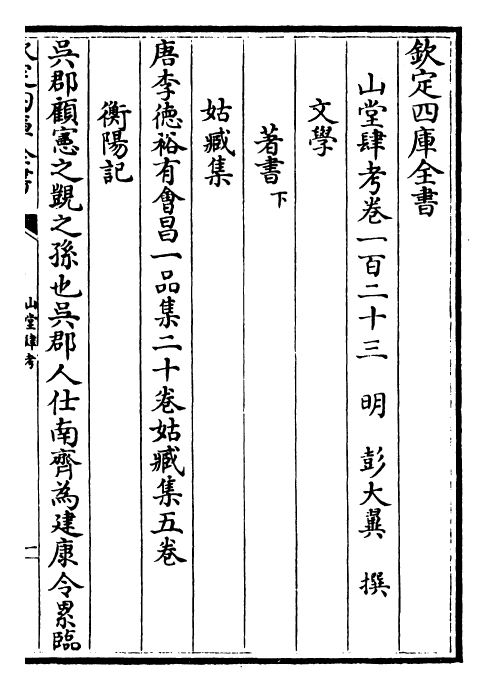 欽定四庫全書
山堂肆考卷一百二十三　明　彭大翼　撰
文學
著書下
姑臧集
唐李德裕有會昌一品集二十卷姑臧集五卷
衡陽記
吳郡顧憲之覬之孫也吳郡人仕南齊為建康令累臨
欽定四庫全書
山堂肆考
一